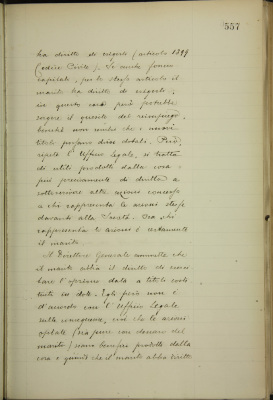 557
ha diritto di riscuoterli (articolo 1399
Codice Civile). Se anche fossero
capitali, per lo stesso articolo il
marito ha diritto di esigerli;
in questo caso però potrebbe
sorgere il quesito del reimpiego,
benchè non sembri che i nuovi
titoli possano dirsi dotali. Però,
ripete l'Ufficio Legale, si tratta
di utili prodotti dalla cosa
più precisamente di diritto a
sottoscrivere altre azioni concesso
a chi rappresenta le azioni stesse
davanti alla Società. Ora chi
rappresenta le azioni è certamente
il marito.
Il Direttore Generale ammette che
il marito abbia il diritto di cam
biare l'opzione data a titolo costi
tuiti in dote. Egli però non è
d'accordo con l'Ufficio Legale
sulla conseguenza, cioè che le azioni
optate (sia pure coi denari del
marito) siano benefizi prodotti della
cosa e quindi che il marito abbia diritto